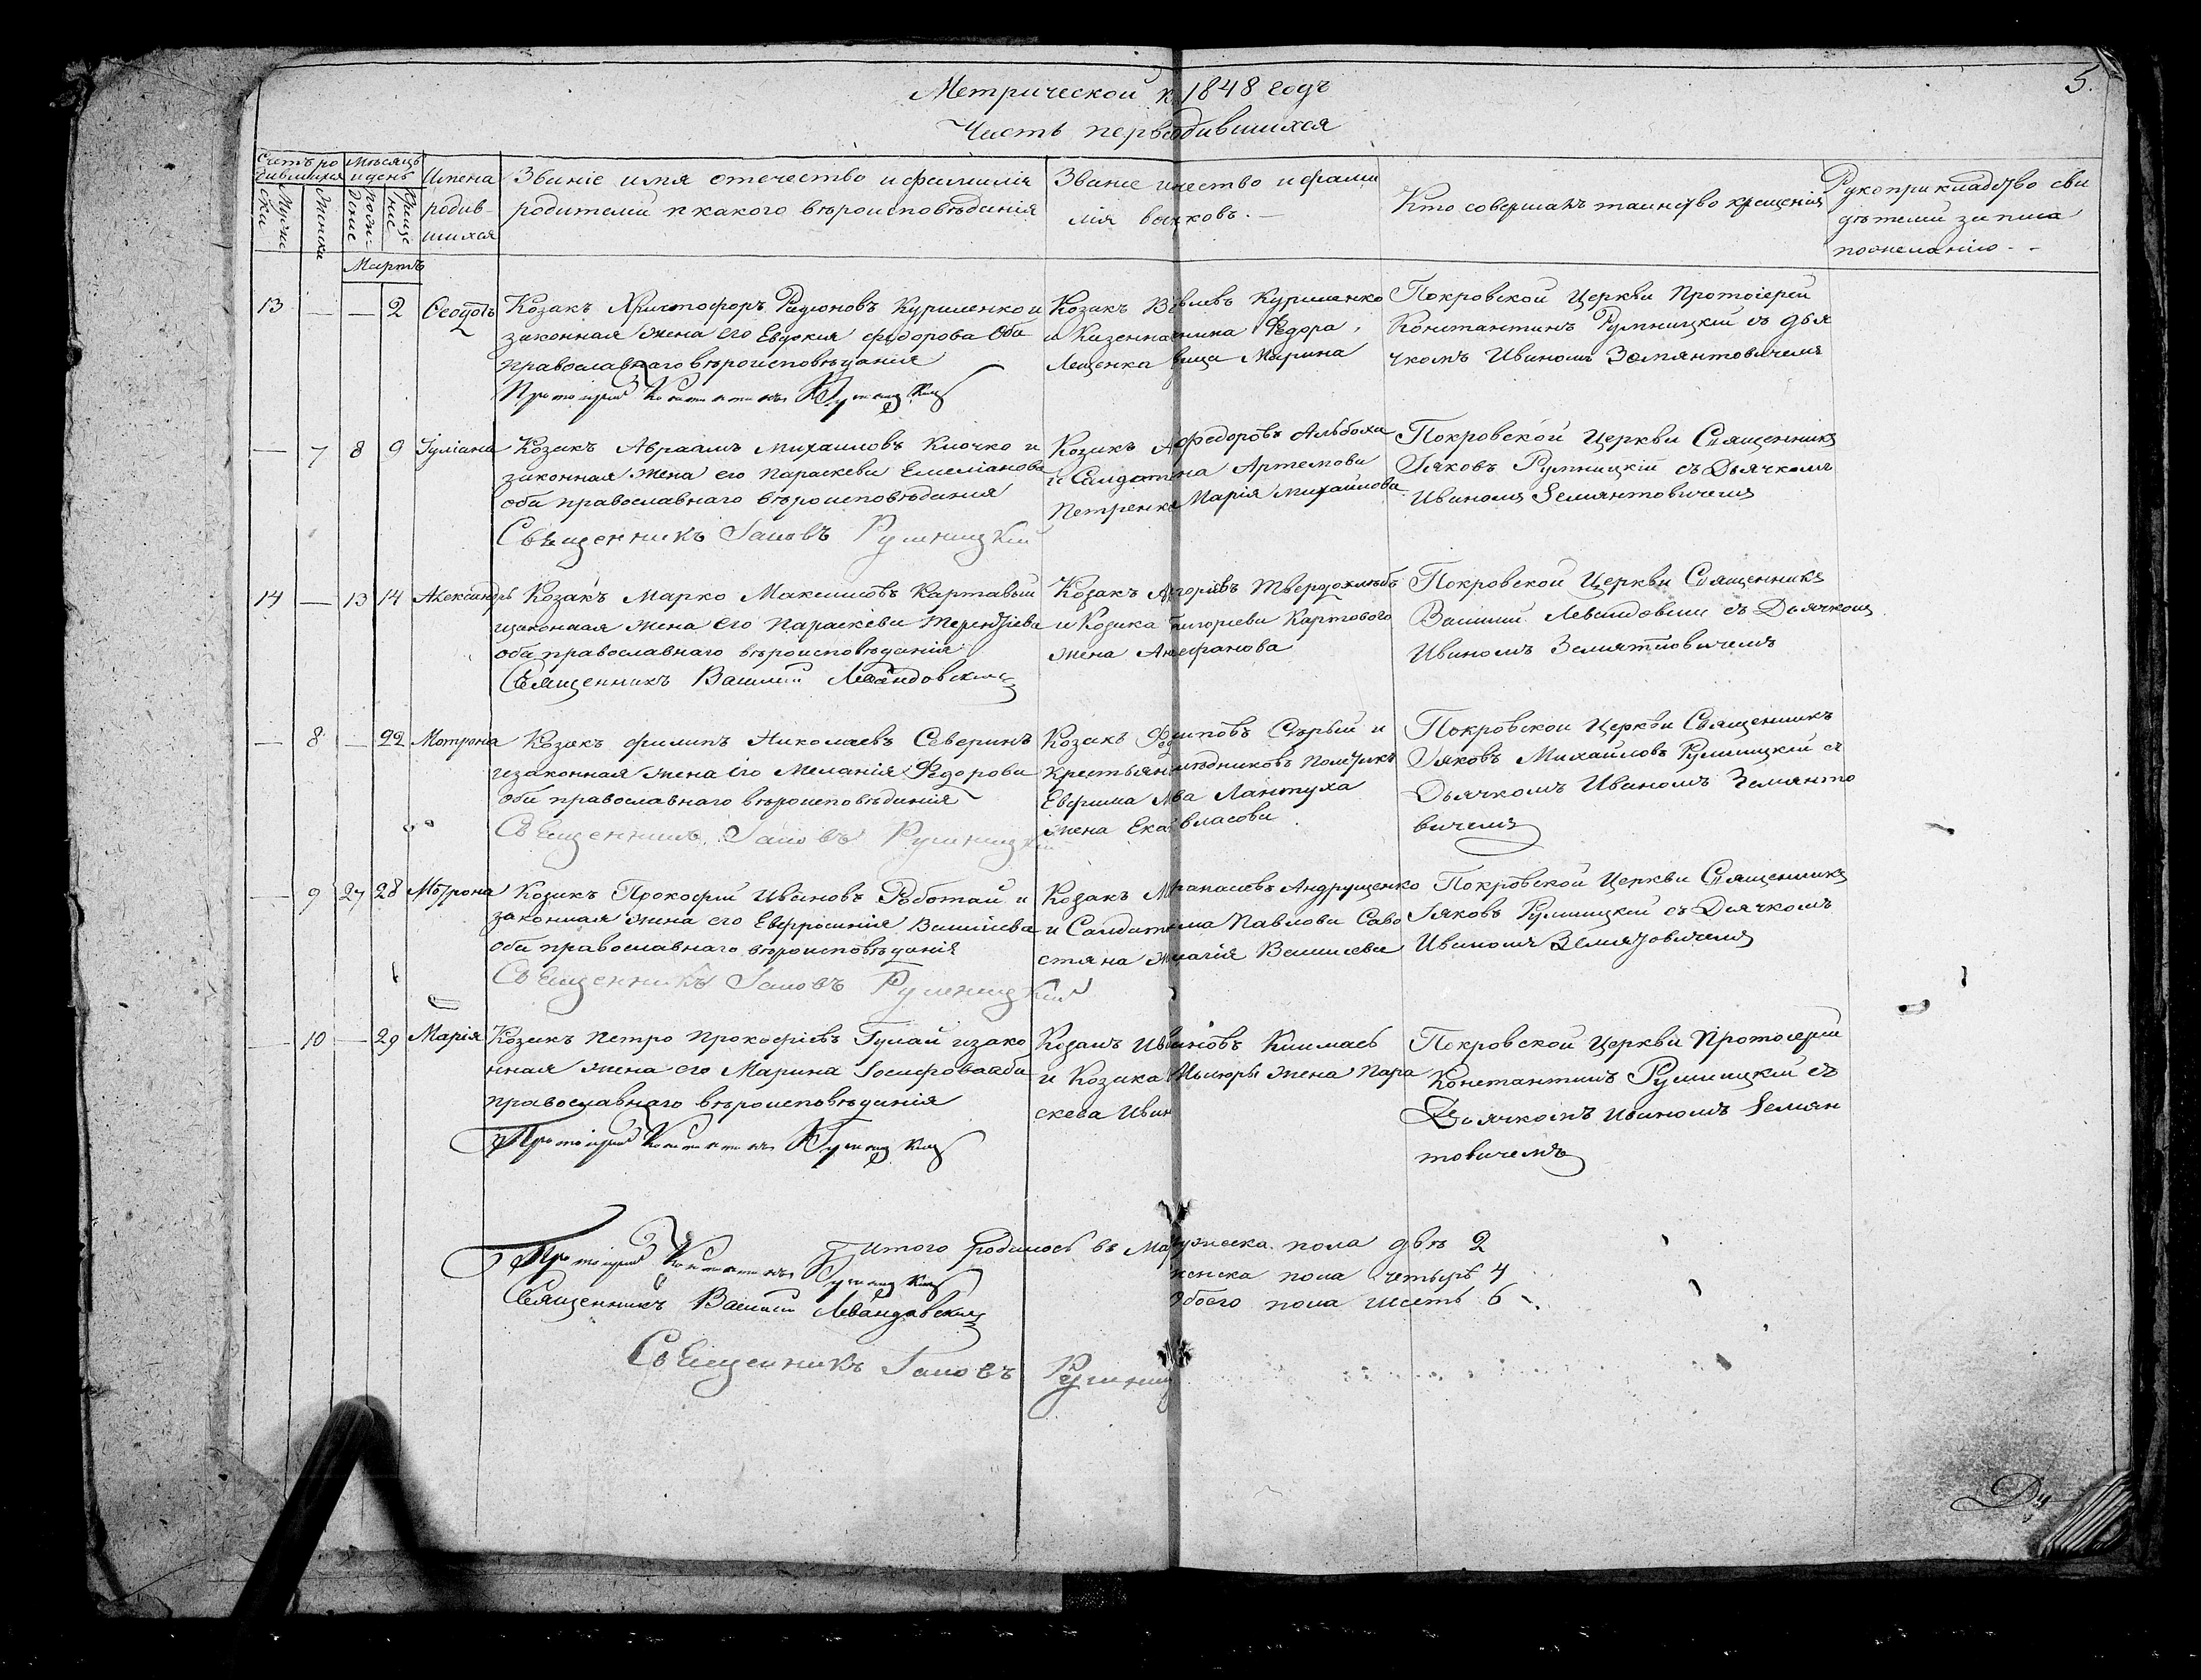 Метрической к 1848 годъ
5.
Часть перв одившихся
Счетъ ро
дившихся
Мѣсяцъ
и день
Имена
родив-
шихся
Званіе имя отечество и фамилія
родителей и какого вѣроисповѣданія
Званіе и ество и фами
лія во ковъ.
Кто совершалъ таинство крещенія
Рукоприкладство сви
дѣтелей записа
по желанію
Мартъ
13 — — 2 Ѳеодотъ
Козакъ Христофоръ Радионовъ Куриленко и
законная жена его Евдокия Федорова оба
православнаго вѣроисповѣданія
Протоіерей Константинъ Румницкій
Козакъ В влевъ Куриленко
и Казенна Федора
Лещенка вица Марина
Покровской Церкви Протоіерей
Константинъ Румницкій съ дья
чкомъ Иваномъ Земянтовичемъ
— 7 8 9 Іуліана
Козакъ Авраамъ Михаиловъ Клочко и
законная жена его Параскева Емеліанова
оба православнаго вѣроисповѣдания
Священникъ Іаковъ Румницкій
Козакъ А Федоровъ Альбоха
и Салдат на Артемова
Петренка Марія Михайлова
Покровской Церкви Священникъ
Іяковъ Румницкій съ Дьячкомъ
Иваномъ Земянтовичемъ
14 — 13 14 Александръ
Козакъ Марко Максимовъ Картавый
и законная жена его Параскева Терентіева
оба православнаго вѣроисповѣданія
Священникъ Василій Левандовскій
Козакъ А горіевъ Твердохлѣбъ
и Козака Григориева Картового
жена А ефанова
Покровской Церкви Священникъ
Василий Левандовский съ Дьячкомъ
Иваномъ Земянтовичемъ
— 8 — 22 Мотрона
Козакъ Филипъ Николаевъ Северинъ
и законная жена его Меланія Федорова
оба православнаго вѣроисповѣданія
Священникъ Іаковъ Румницкій
Козакъ Ф иповъ Сѣрый и
Крестьян
Евфима ва Лантуха
жена Ека власова
Покровской Церкви Священникъ
Іяковъ Михайловъ Румницкій съ
Дьячкомъ Иваномъ Земянто
вичемъ
— 9 27 28 Мотрона
Козакъ Прокофий Ивановъ Роботай и
законная жена его Евфросиния Василіева
оба православнаго вѣроисповѣданія
Священникъ Іаковъ Румницкій
Козакъ М анасіевъ Андрущенко
и Салдат Павлова Саво
стяна ж Василева
Покровской Церкви Священникъ
Іяковъ Румницкій съ Дьячкомъ
Иваномъ Земянтовичемъ
— 10 — 29 Марія
Козакъ Петро Прокофіевъ Гулай и зако
нная жена его Марина Іосифова оба
православнаго вѣроисповѣданія
Протоіерей Константинъ Румницкій
Козакъ Ив ановъ Климась
и Козака жена Пара
скева Иван
Покровской Церкви Протоіерей
Константинъ Румницкій съ
Дьячкомъ Иваномъ Земян
товичемъ
Итого родилось въ Мар ужеска пола двѣ 2
женска пола четырѣ 4
обоего пола шесть 6
Протоіерей Константинъ Румницкій
Священникъ Василій Левандовскій
Священникъ Іаковъ Румниц